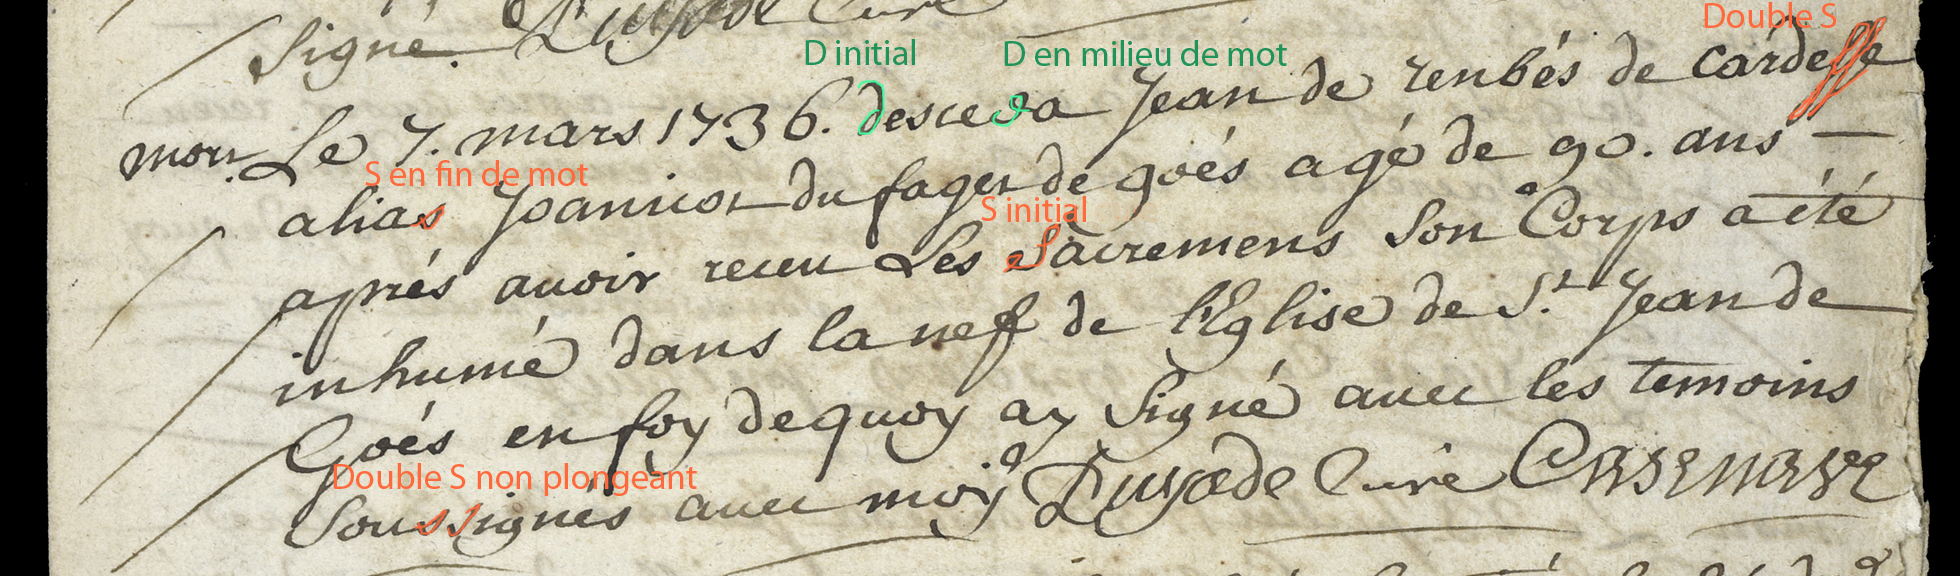 Double S
signé. Puyade Curé
D initial D en milieu de mot
mort. Le 7. mars 1736. desceda Jean de renbés de cardesse
S en fin de mot
alias Joannicot du faget de goés agé de 90. ans —
S initial
aprés auoir receu Les Sacremens son Corps a été
inhumé dans la nef de l'Eglise de St. Jean de
Goés en foy de quoy ay signé auec les temoins
Double S non plongeant
soussignés auec moy Puyade Curé Casenave